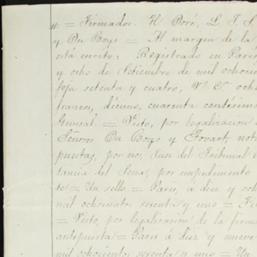 " = Firmador. H Boré, L. T. S
y Du Boys = Al margen de la
está escrito; Registrado en Paris
y ocho de Setiembre de mil ochoci
foja setenta y cuatro, Vº C ochó
francos, décimo, cuarenta centésimo
General = Visto, por legalización
Señores Du Boys y Tovart, not
puestas, por nos, Juez del Tribunal
tancia del Sena, por impedimento
te = Un sello = Paris, á diez y och
mil ochocientos sesenta y uno = Fi
= Visto, por legalización de la firma
antepuesta = Paris á diez y nueve
mil ochocientos sesenta y uno = Un